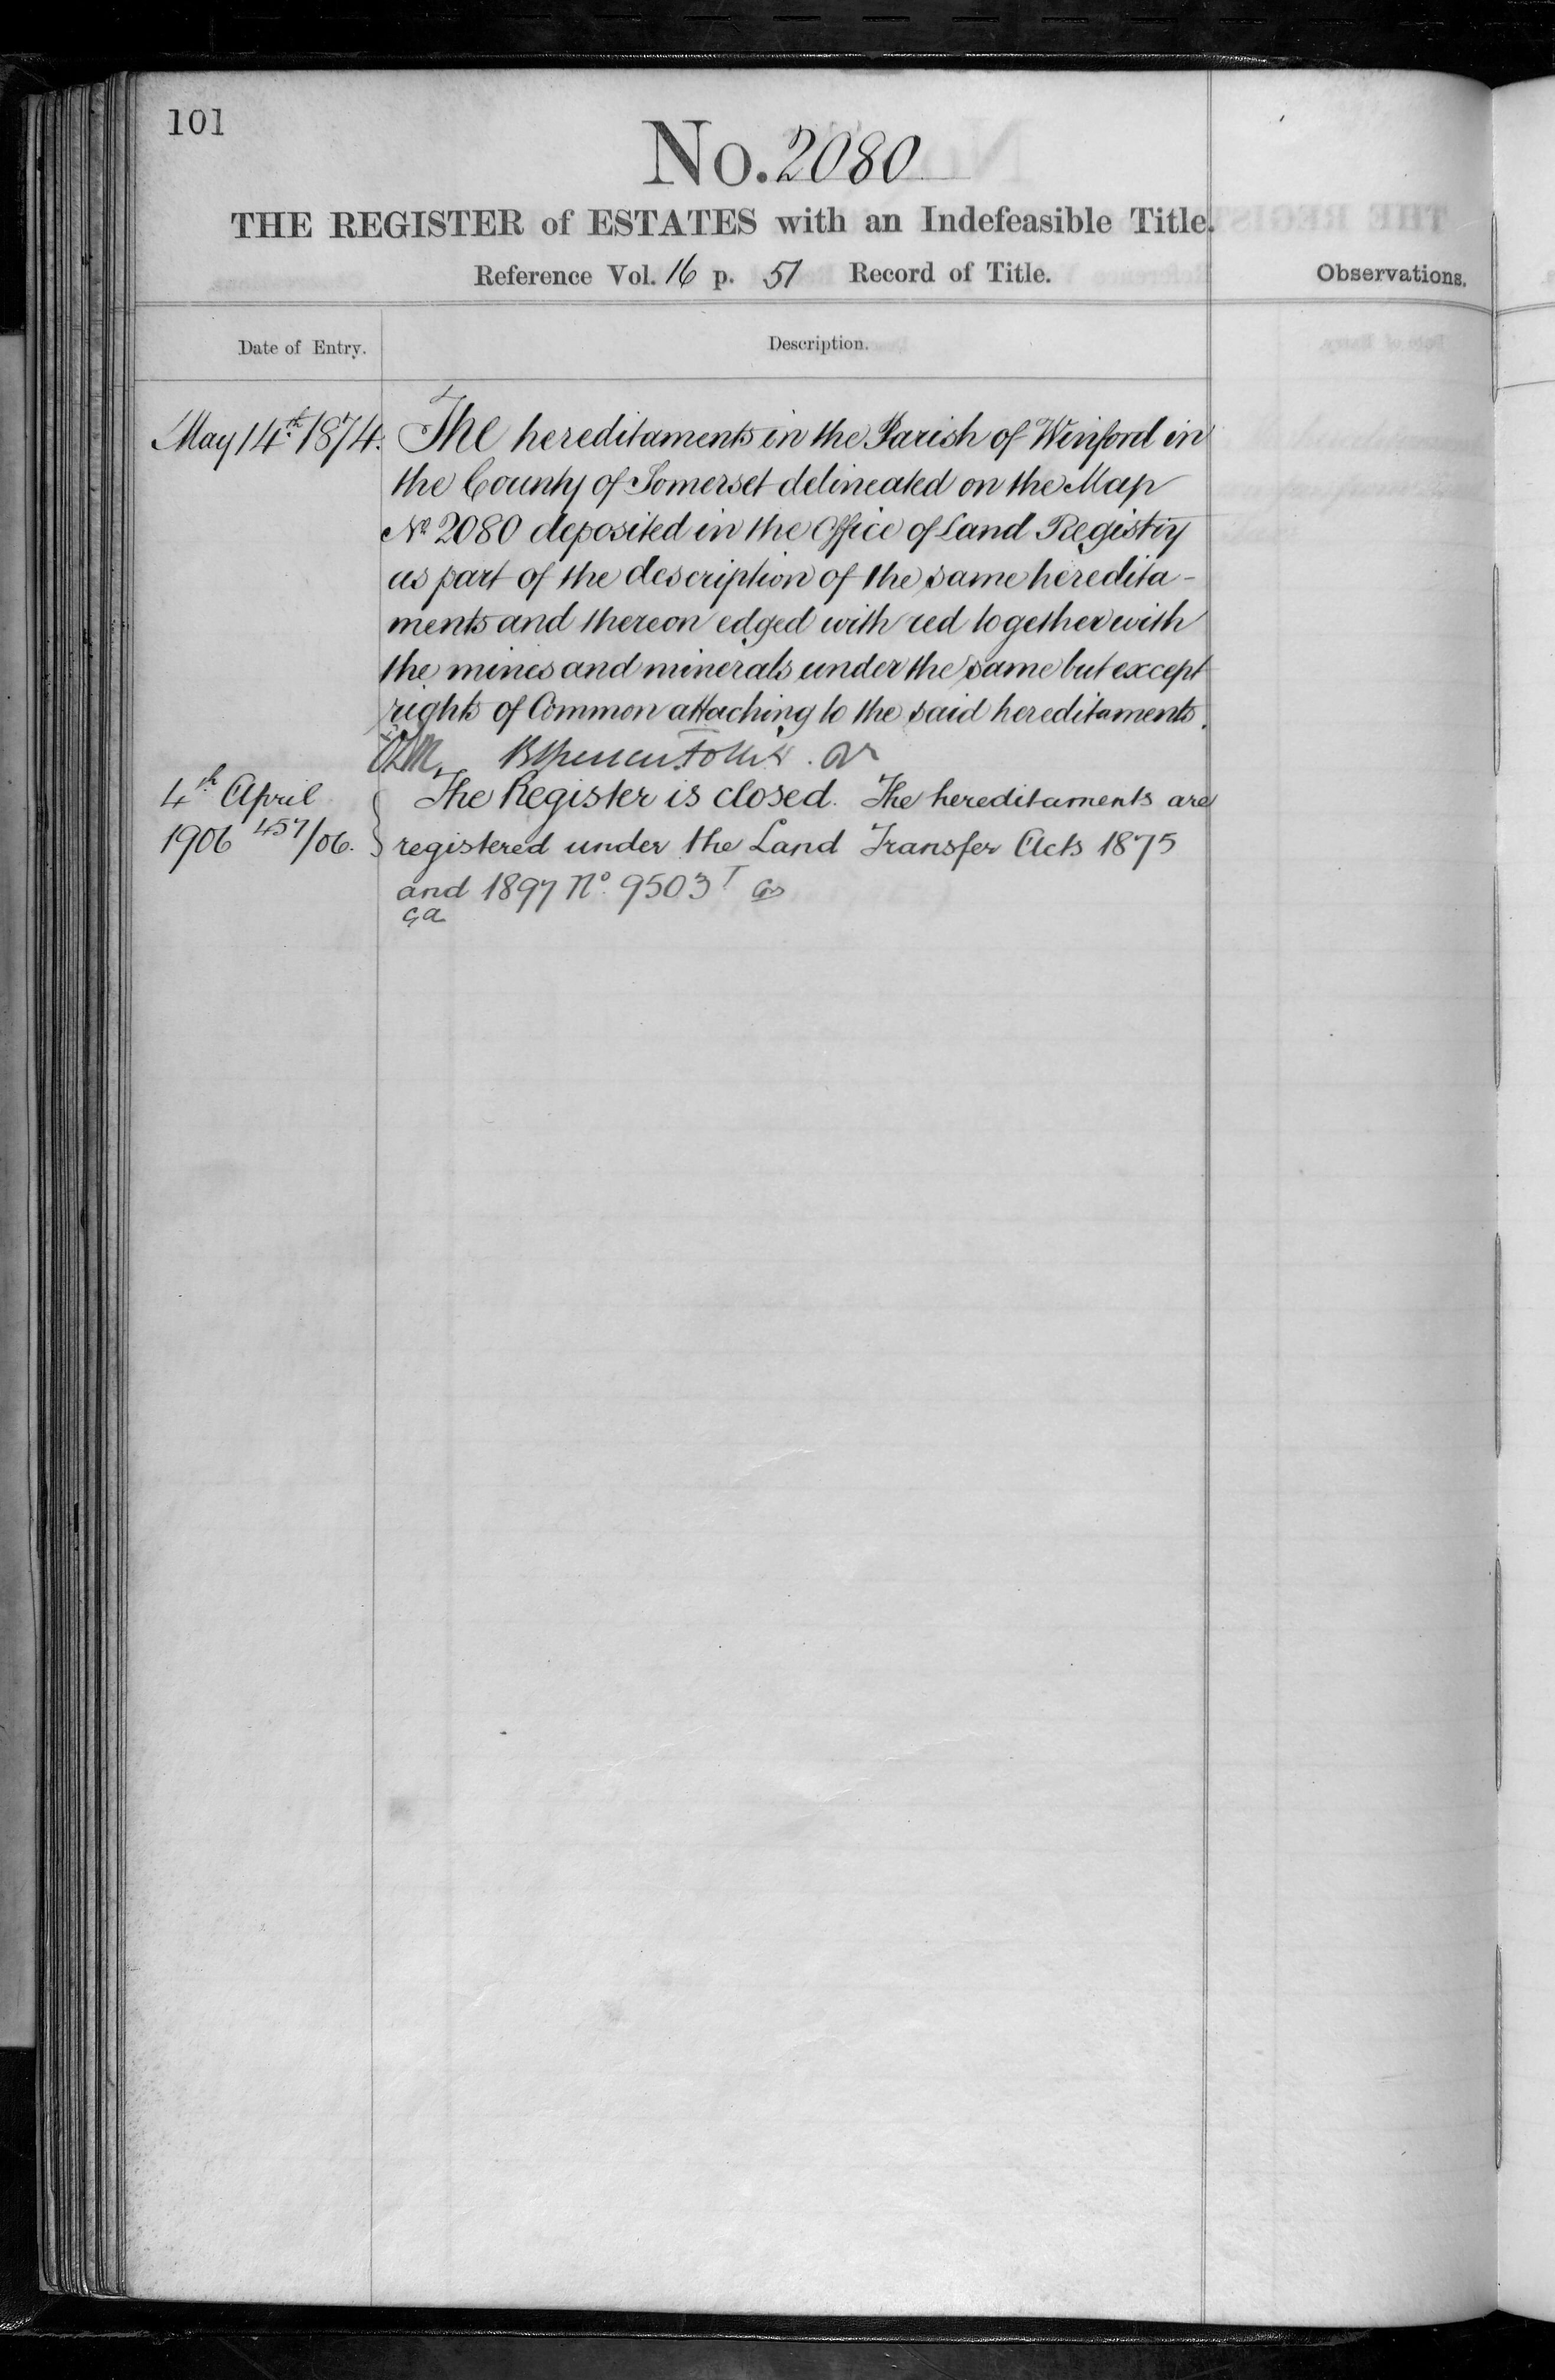 101
No. 2080
THE REGISTER of ESTATES with an Indefeasible Title.
Reference Vol. 16 p. 51 Record of Title.
Observations.
Date of Entry.
Description.
May 14th 1874.
The hereditaments in the Parish of Winford in
the County of Somerset delineated on the Map
No 2080 deposited in the Office of Land Registry
as part of the description of the same heredita-
ments and thereon edged with red together with
the mines and minerals under the same but except
rights of Common attaching to the said hereditaments.
4th April
1906 457/06.
The Register is closed. The hereditaments are
registered under the Land Transfer Acts 1875
and 1897 No. 9503